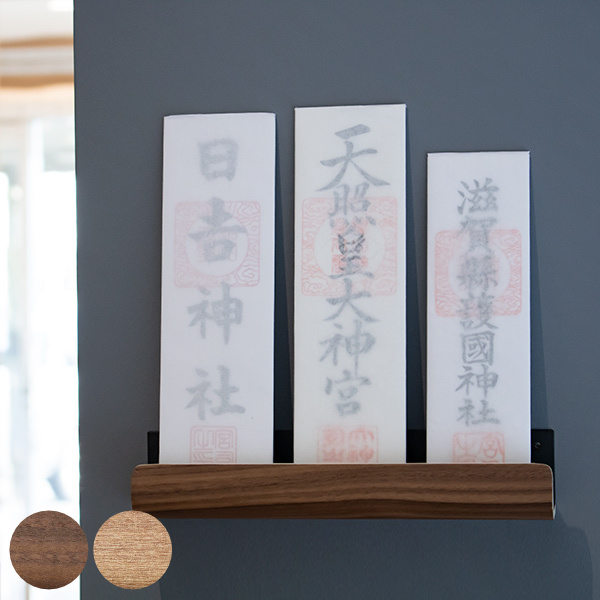 日吉神社
天照皇大神宮
滋賀縣護國神社